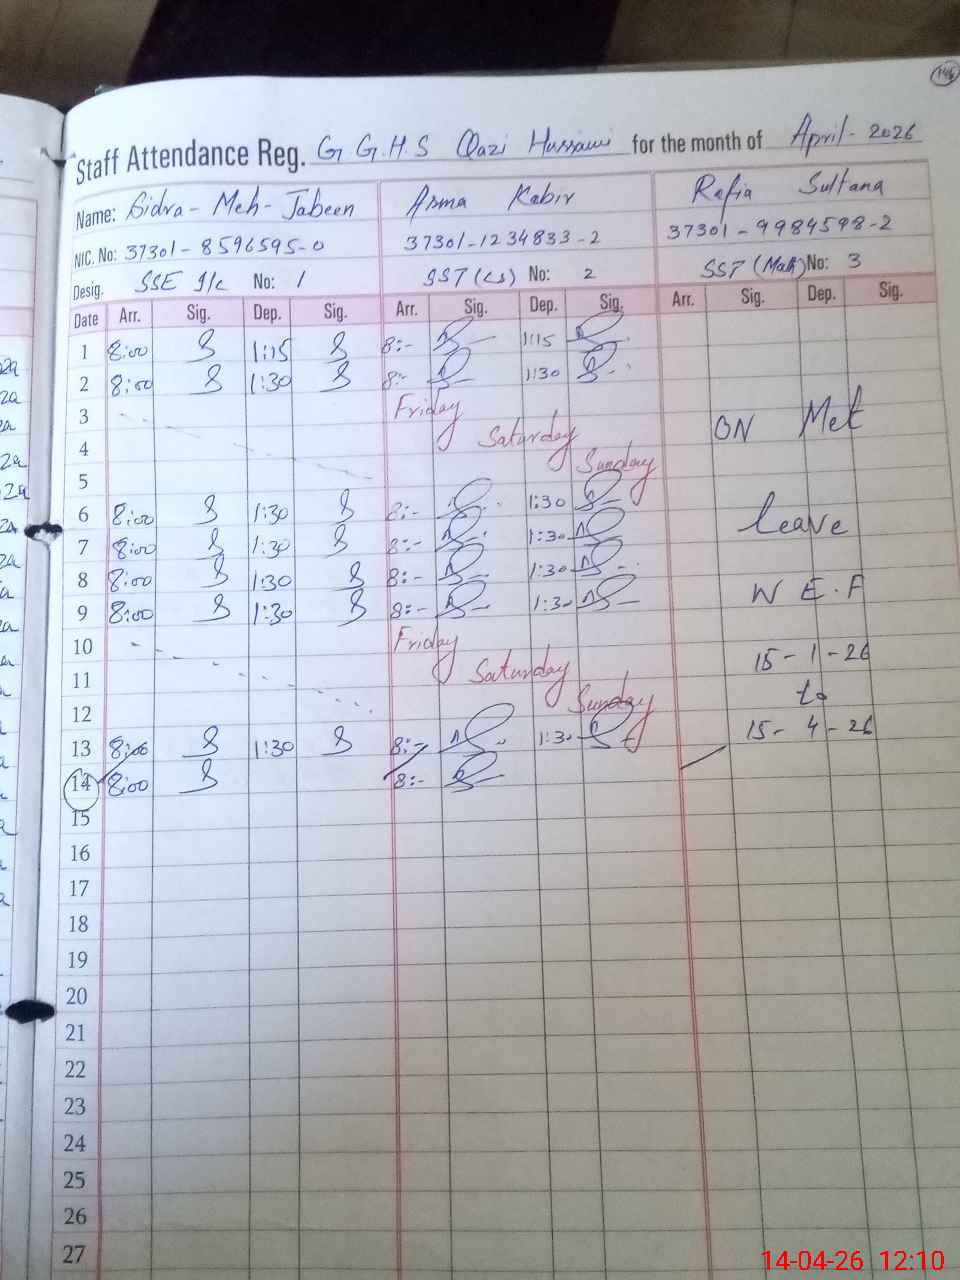 146
Staff Attendance Reg. G G.H.S Qazi Hussain for the month of April - 2026
Name: Sidra - Meh - Jabeen Asma Kabir Rafia Sultana
NIC. No: 37301 - 8596595-0 37301-1234833-2 37301-9984598-2
Desig. SSE I/c No: 1 SST (CS) No: 2 SST (Math) No: 3
Date Arr. Sig. Dep. Sig. Arr. Sig. Dep. Sig. Arr. Sig. Dep. Sig.
1 8:00 1:15 8:- 1:15
2 8:00 1:30 8:- 1:30
3 Friday ON Met
4 Saturday
5 Sunday
6 8:00 1:30 8:- 1:30 leave
7 8:00 1:30 8:- 1:30
8 8:00 1:30 8:- 1:30 W E.F
9 8:00 1:30 8:- 1:30
10 Friday 15-1-26
11 Saturday to
12 Sunday 15-4-26
13 8:00 1:30 8:- 1:30
14 8:00 8:-
15
16
17
18
19
20
21
22
23
24
25
26
27
14-04-26 12:10